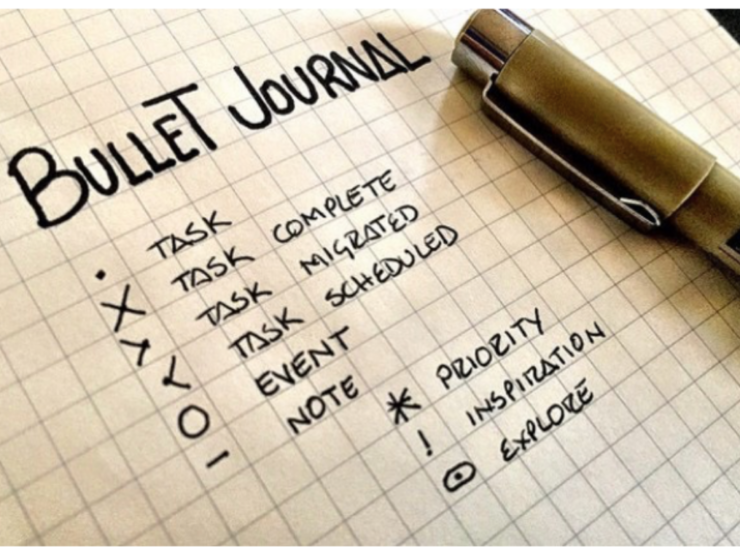 BULLET JOURNAL
• TASK
X TASK COMPLETE
> TASK MIGRATED
< TASK SCHEDULED
O EVENT
– NOTE
* PRIORITY
! INSPIRATION
⊙ EXPLORE